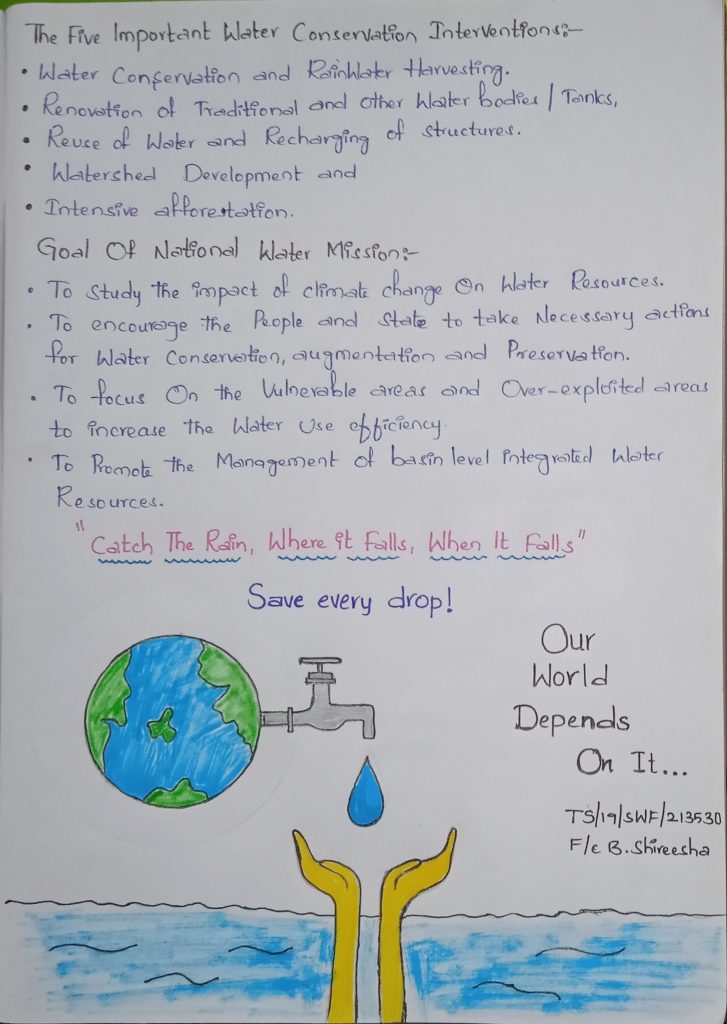 The Five Important Water Conservation Interventions:-
• Water Conservation and RainWater Harvesting.
• Renovation of Traditional and other Water bodies / Tanks,
• Reuse of Water and Recharging of structures.
• Watershed Development and
• Intensive afforestation.
Goal Of National Water Mission:-
• To Study the impact of climate change On Water Resources.
• To encourage the People and State to take Necessary actions
for Water Conservation, augmentation and Preservation.
• To focus On the Vulnerable areas and Over-exploited areas
to increase the Water Use efficiency.
• To Promote the Management of basin level integrated Water
Resources.
"Catch The Rain, Where it Falls, When It Falls"
Save every drop!
Our
World
Depends
On It...
TS/19/SWF/213530
F/c B. Shireesha